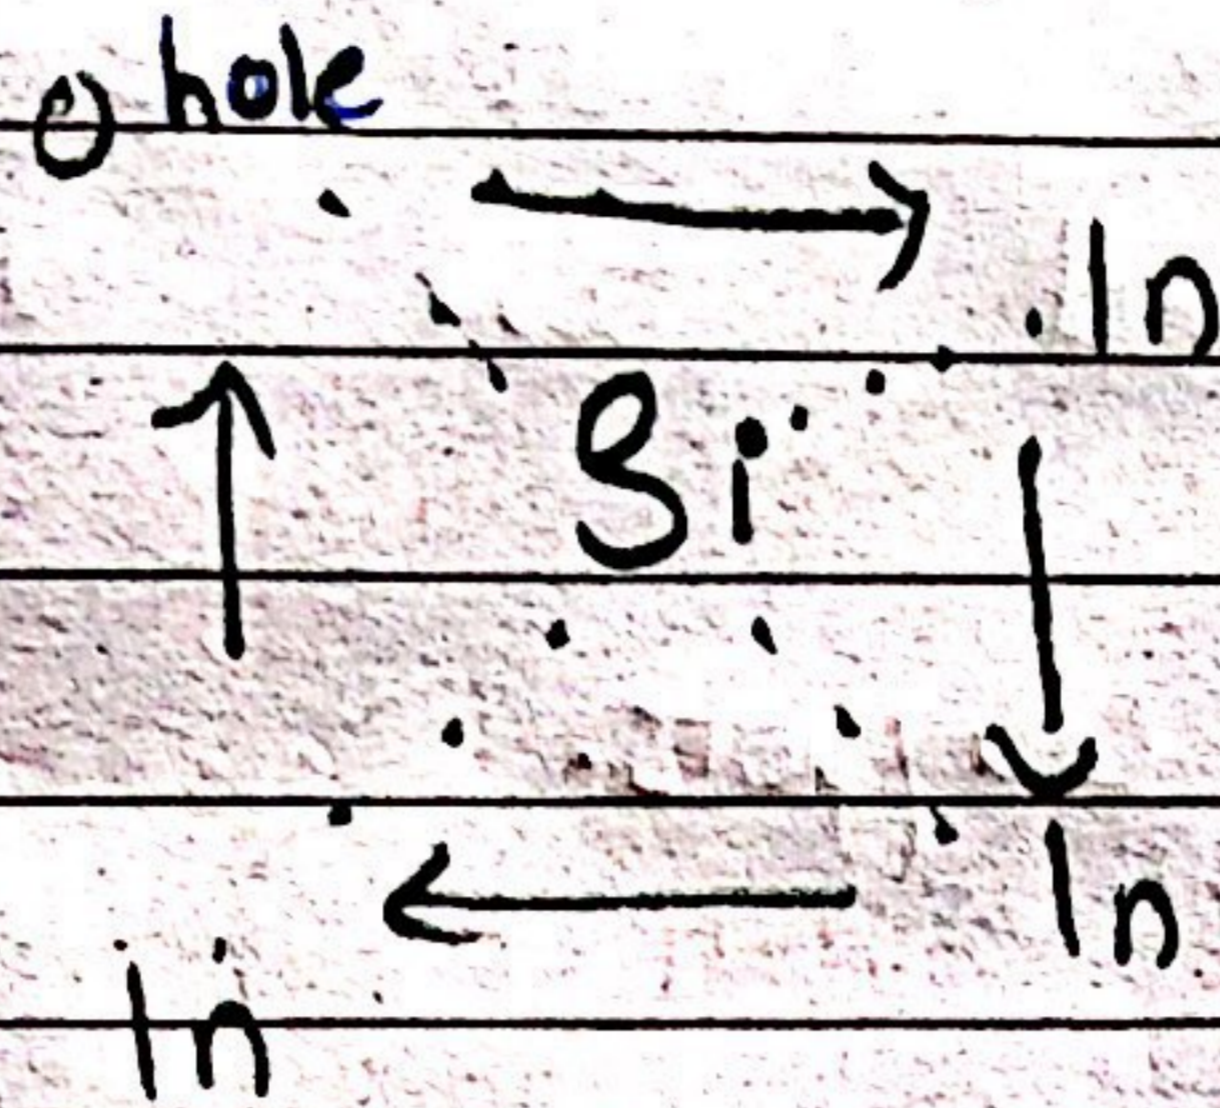 O hole
In
Si
In
In